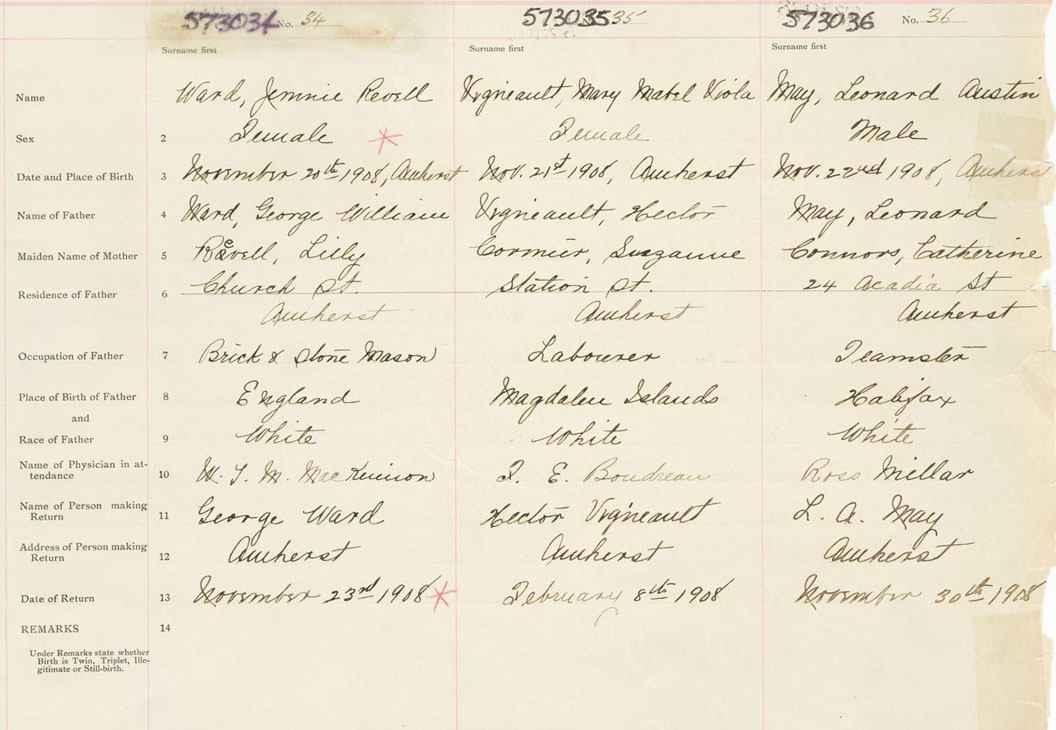 573034 No. 34 573035 35 573036 No. 36
Surname first Surname first Surname first
Name Ward, Jennie Revell Vigneault, Mary Mabel Viola May, Leonard Austin
Sex 2 Female Female Male
Date and Place of Birth 3 November 20th 1908, Amherst Nov. 21st 1908, Amherst Nov. 22nd 1908, Amherst
Name of Father 4 Ward, George William Vigneault, Hector May, Leonard
Maiden Name of Mother 5 Revell, Lilly Cormier, Suezanne Connors, Catherine
Residence of Father 6 Church St. Station St. 24 Acadia St
Amherst Amherst Amherst
Occupation of Father 7 Brick & Stone Mason Labourer Teamster
Place of Birth of Father 8 England Magdalen Islands Halifax
and
Race of Father 9 White White White
Name of Physician in at-
tendance 10 W. T. M. MacKinnon F. E. Boudreau Ross Millar
Name of Person making
Return 11 George Ward Hector Vigneault L. A. May
Address of Person making
Return 12 Amherst Amherst Amherst
Date of Return 13 November 23rd 1908 February 8th 1908 November 30th 1908
REMARKS 14
Under Remarks state whether
Birth is Twin, Triplet, Ille-
gitimate or Still-birth.